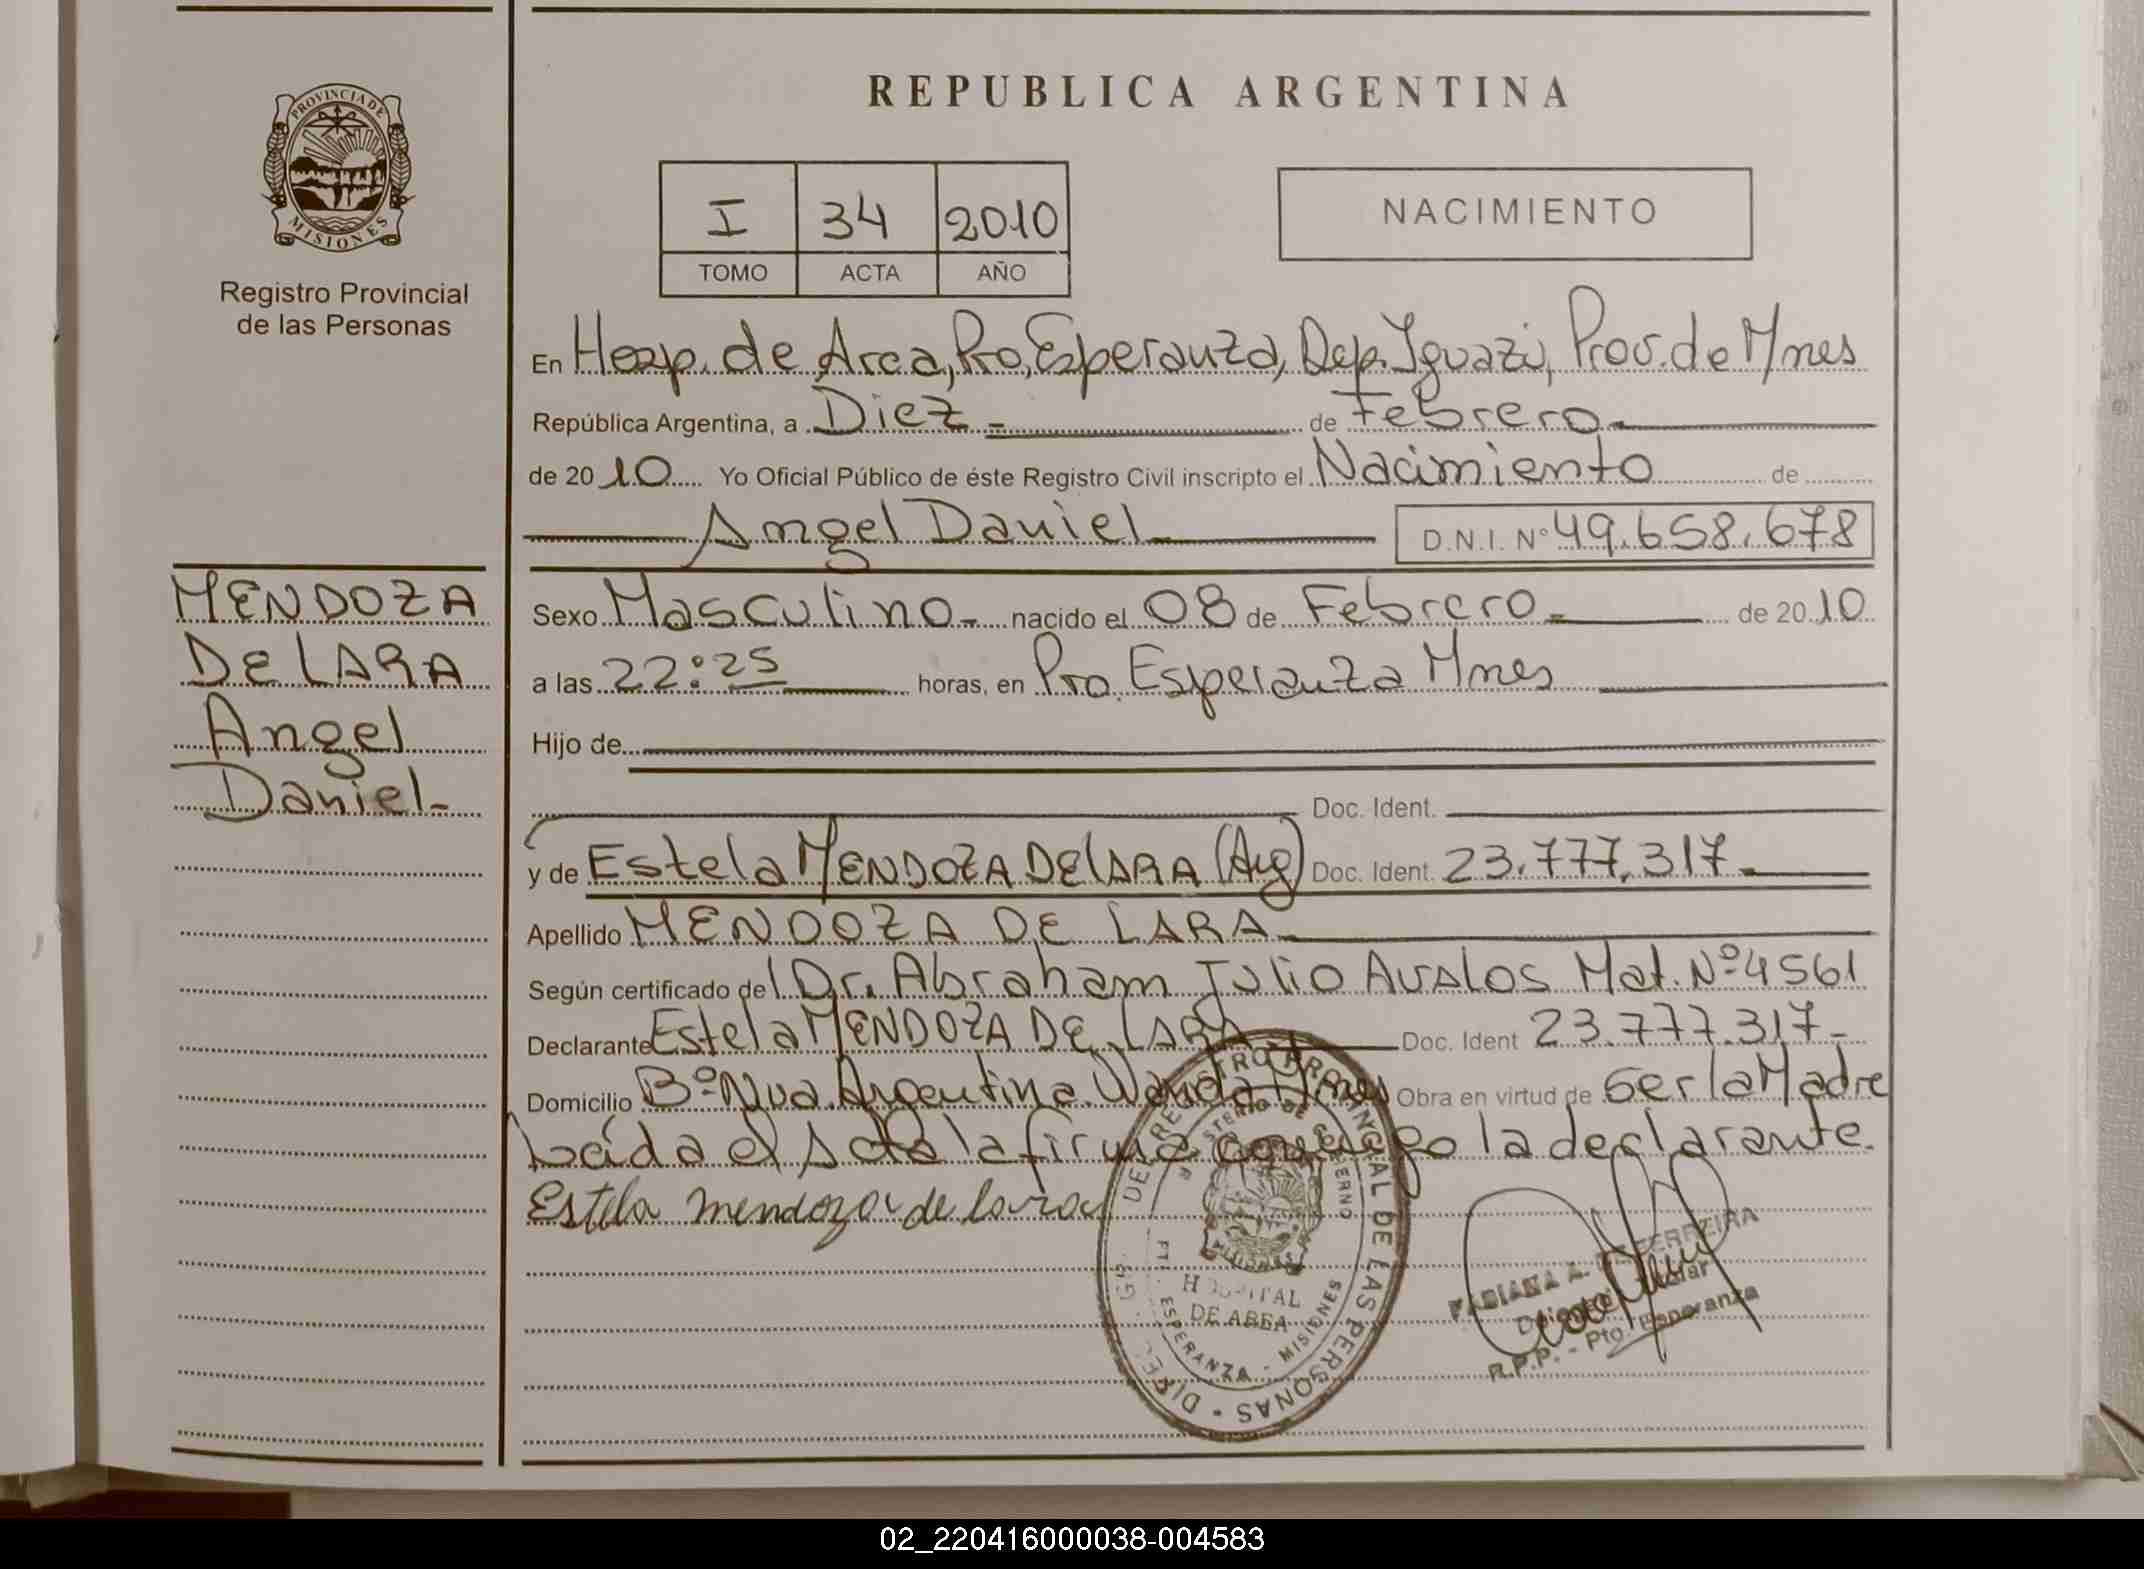 REPUBLICA ARGENTINA
PROVINCIA DE
MISIONES
Registro Provincial
de las Personas
I 34 2010
TOMO ACTA AÑO
NACIMIENTO
En Hosp. de Area, Pto, Esperanza, Dep. Iguazú, Prov. de Mnes
República Argentina, a Diez - de Febrero -
de 2010 Yo Oficial Público de éste Registro Civil inscripto el Nacimiento de
Angel Daniel - D.N.I. Nº 49.658.678
MENDOZA
DE LARA
Angel
Daniel -
Sexo Masculino - nacido el 08 de Febrero - de 2010
a las 22:25 horas, en Pto. Esperanza Mnes
Hijo de
Doc. Ident.
y de Estela MENDOZA DE LARA (Arg) Doc. Ident. 23.777.317 -
Apellido MENDOZA DE LARA -
Según certificado del Dr. Abraham Julio Avalos Mat. Nº 4561
Declarante Estela MENDOZA DE LARA Doc. Ident 23.777.317 -
Domicilio Bº Nva. Argentina. Wanda Mnes Obra en virtud de Ser la Madre
Leída el Acta la firma conmigo la declarante.
Estela mendoza de lara
DEL REGISTRO PROVINCIAL DE LAS PERSONAS
HOSPITAL
DE AREA
ESPERANZA - MISIONES
FABIANA A. DE FERREIRA
R.P.P. - Pto. Esperanza
02_220416000038-004583